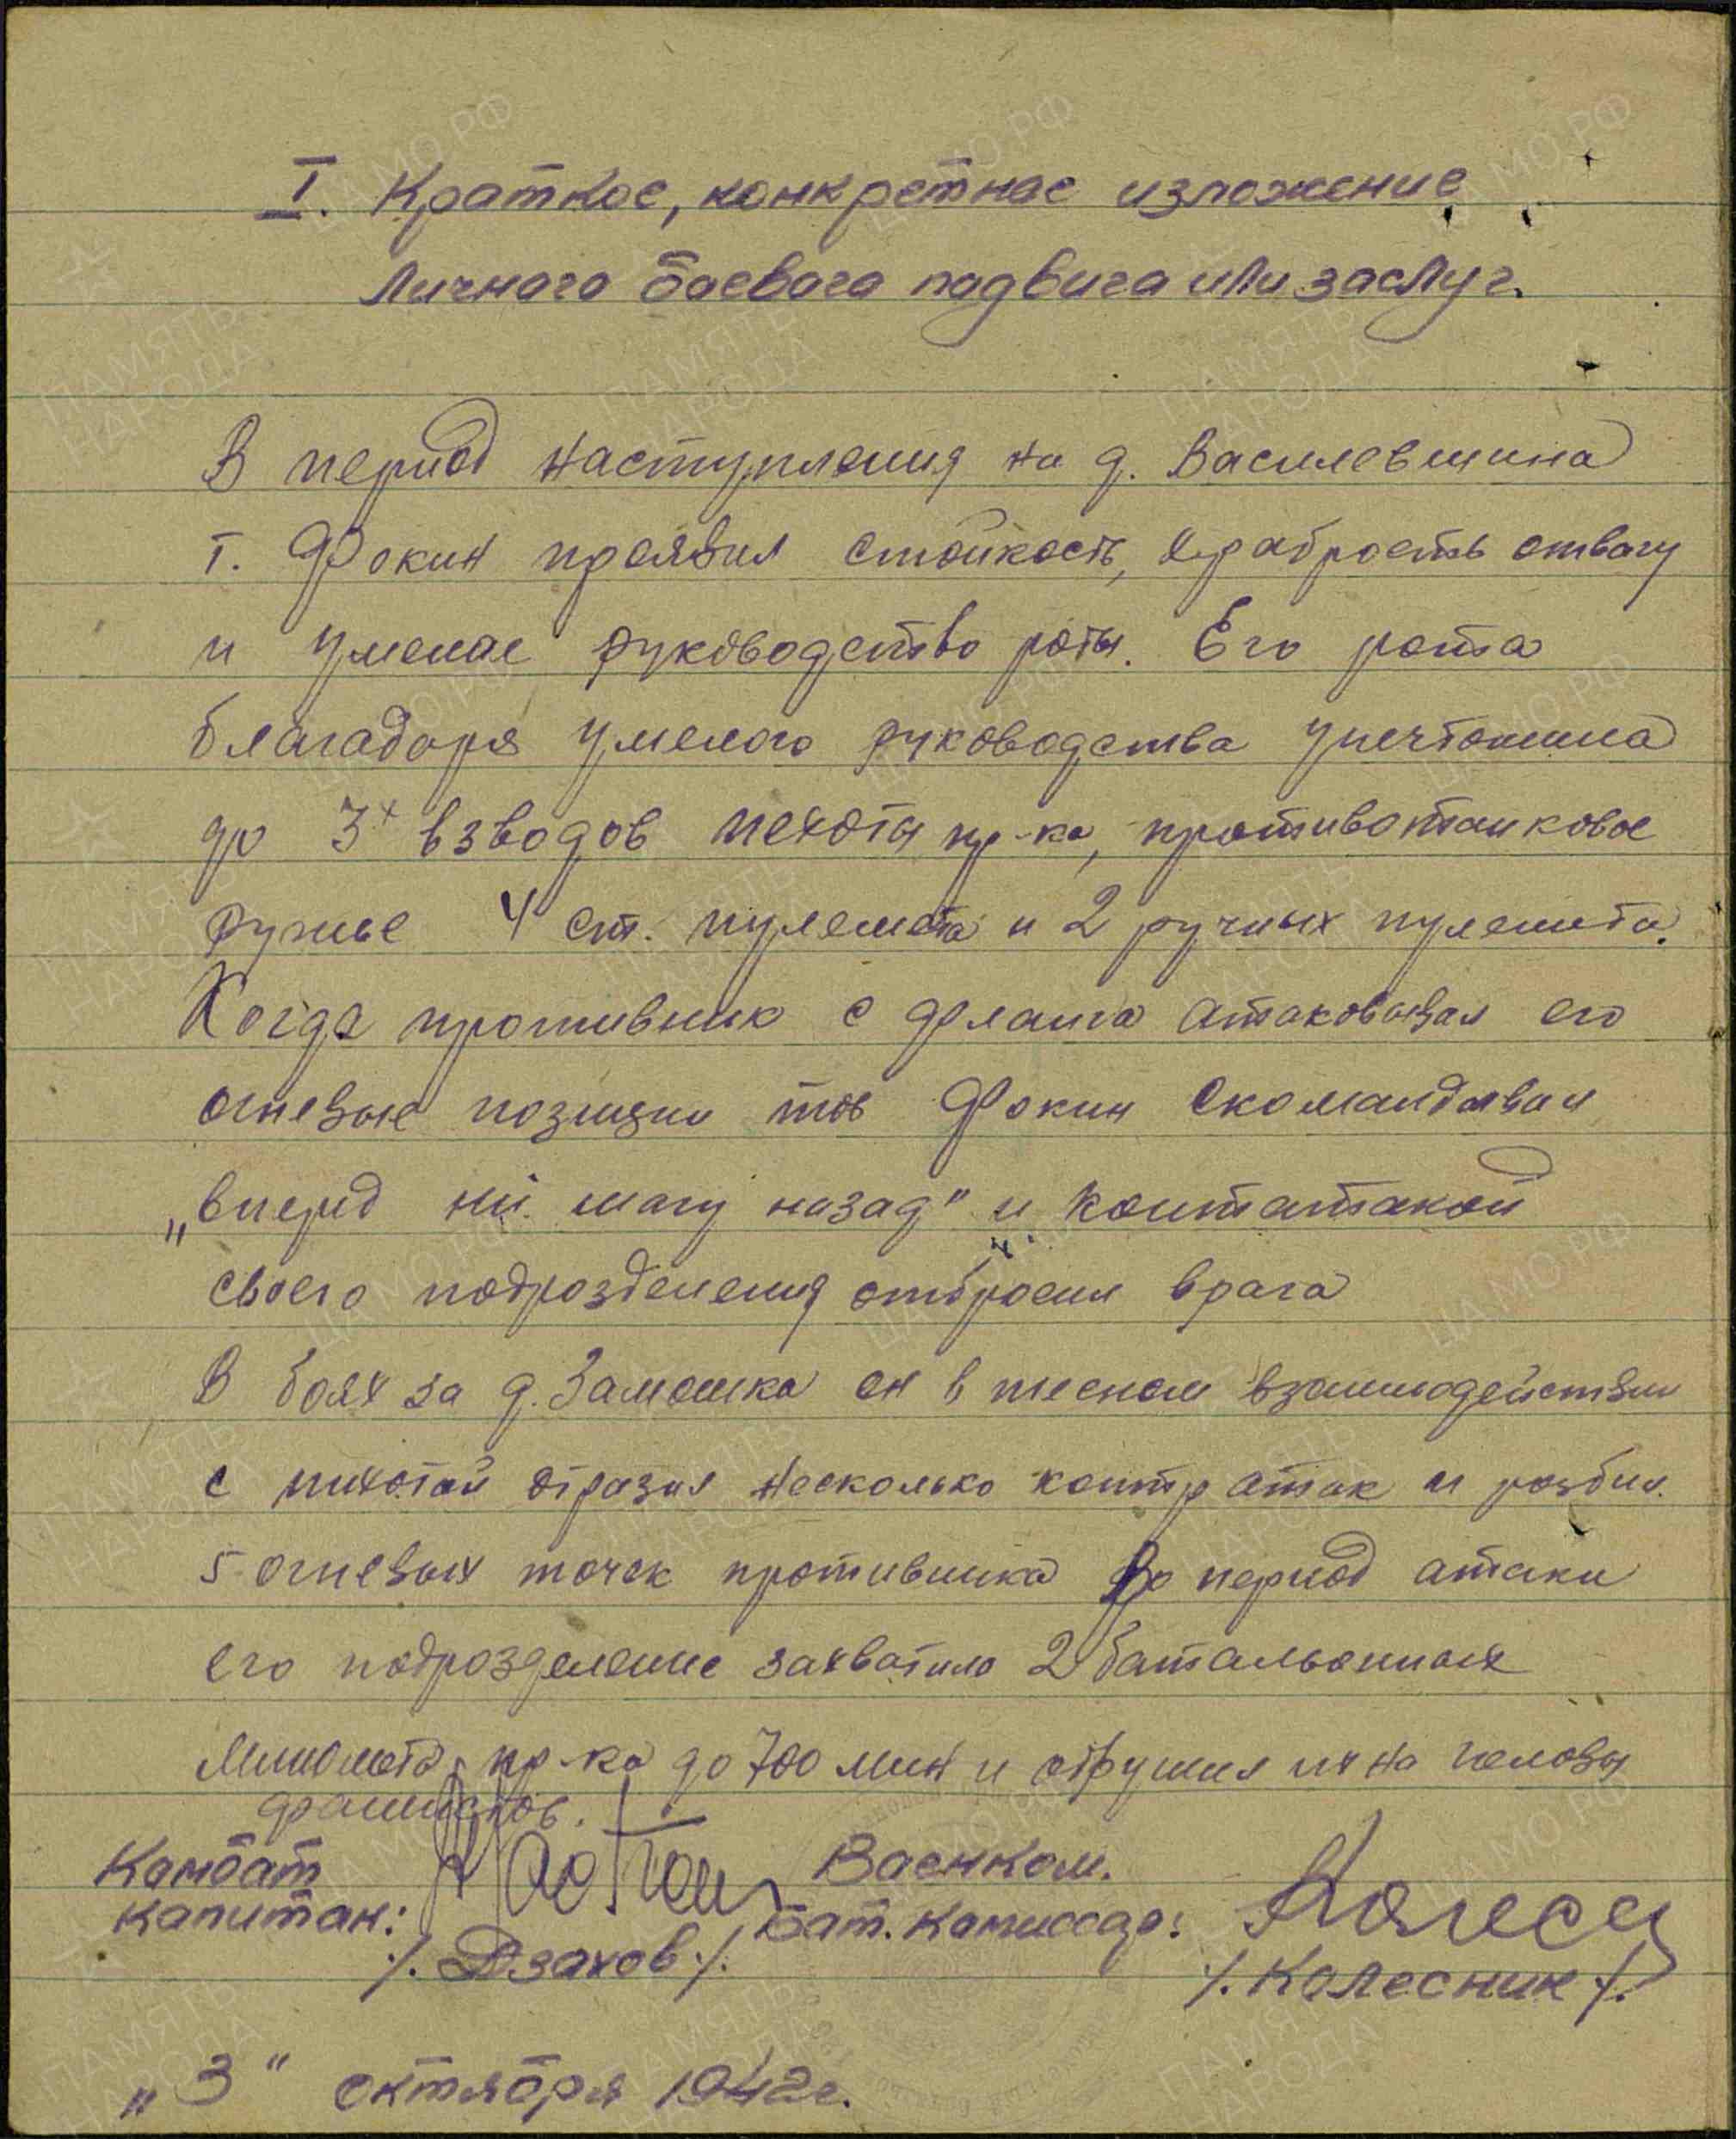 I. Краткое, конкретное изложение
личного боевого подвига или заслуг.
В период наступления на д. Василевщина
т. Фокин проявил стойкость, храбрость отвагу
и умелое руководство роты. Его рота
благодаря умелого руководства уничтожила
до 3х взводов пехоты пр-ка, противотанковое
ружье 4 ст. пулемета и 2 ручных пулемета.
Когда противник с фланга атаковывал его
огневые позиции тов Фокин скомандовал
„вперед ни шагу назад" и контатакой
своего подрозделения отбросил врага
В боях за д. Замошка он в тесном взаимодействии
с пихотой отразил несколько контр атак и розбил
5 огневых точек противника во период атаки
его подрозделение захватило 2 батальонных
миномета пр-ка до 700 мин и обрушил их на головы
фашистов.
Комбат Военком.
капитан: бат. комиссар:
/. Дзахов ./. /. Колесник ./.
„3" октября 1942 г.
ПАМЯТЬ НАРОДА
ЦАМО.РФ